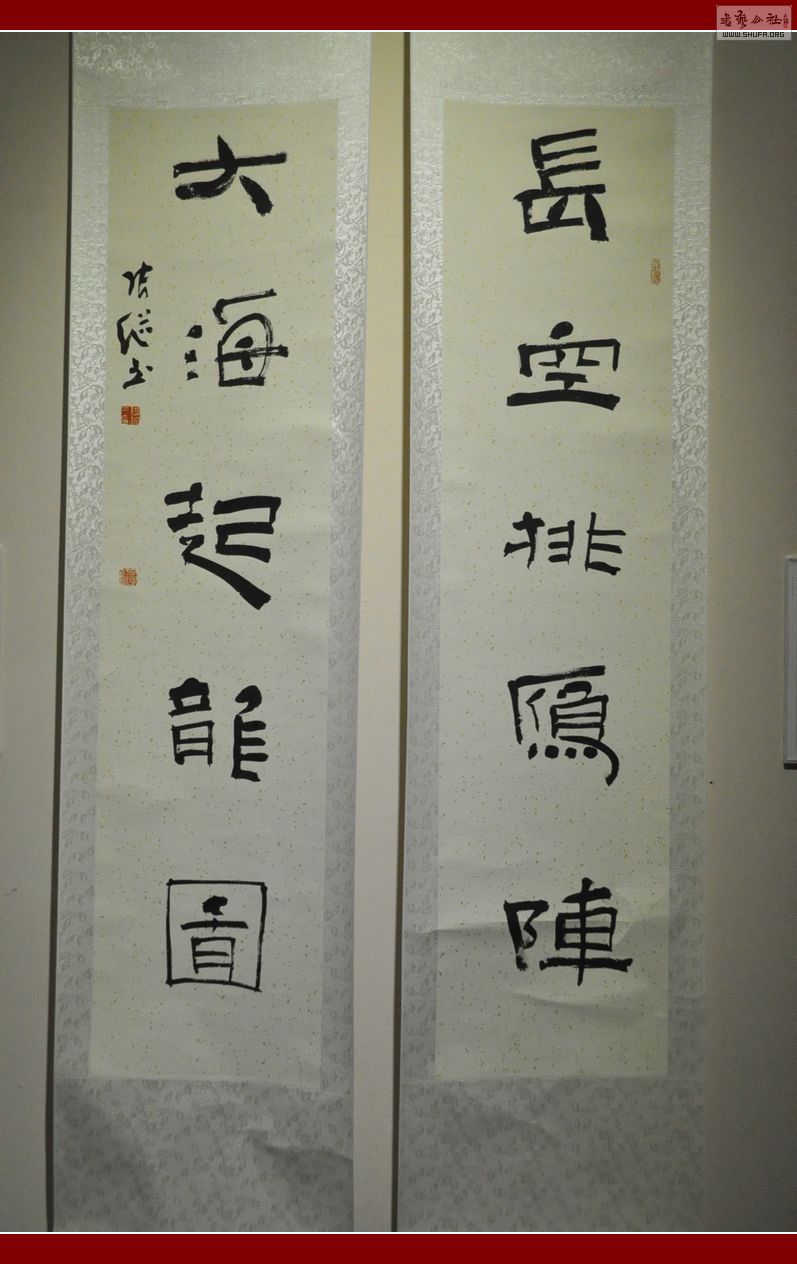 長空排鴈陣
大海起龍圖
书艺公社
WWW.SHUFA.ORG